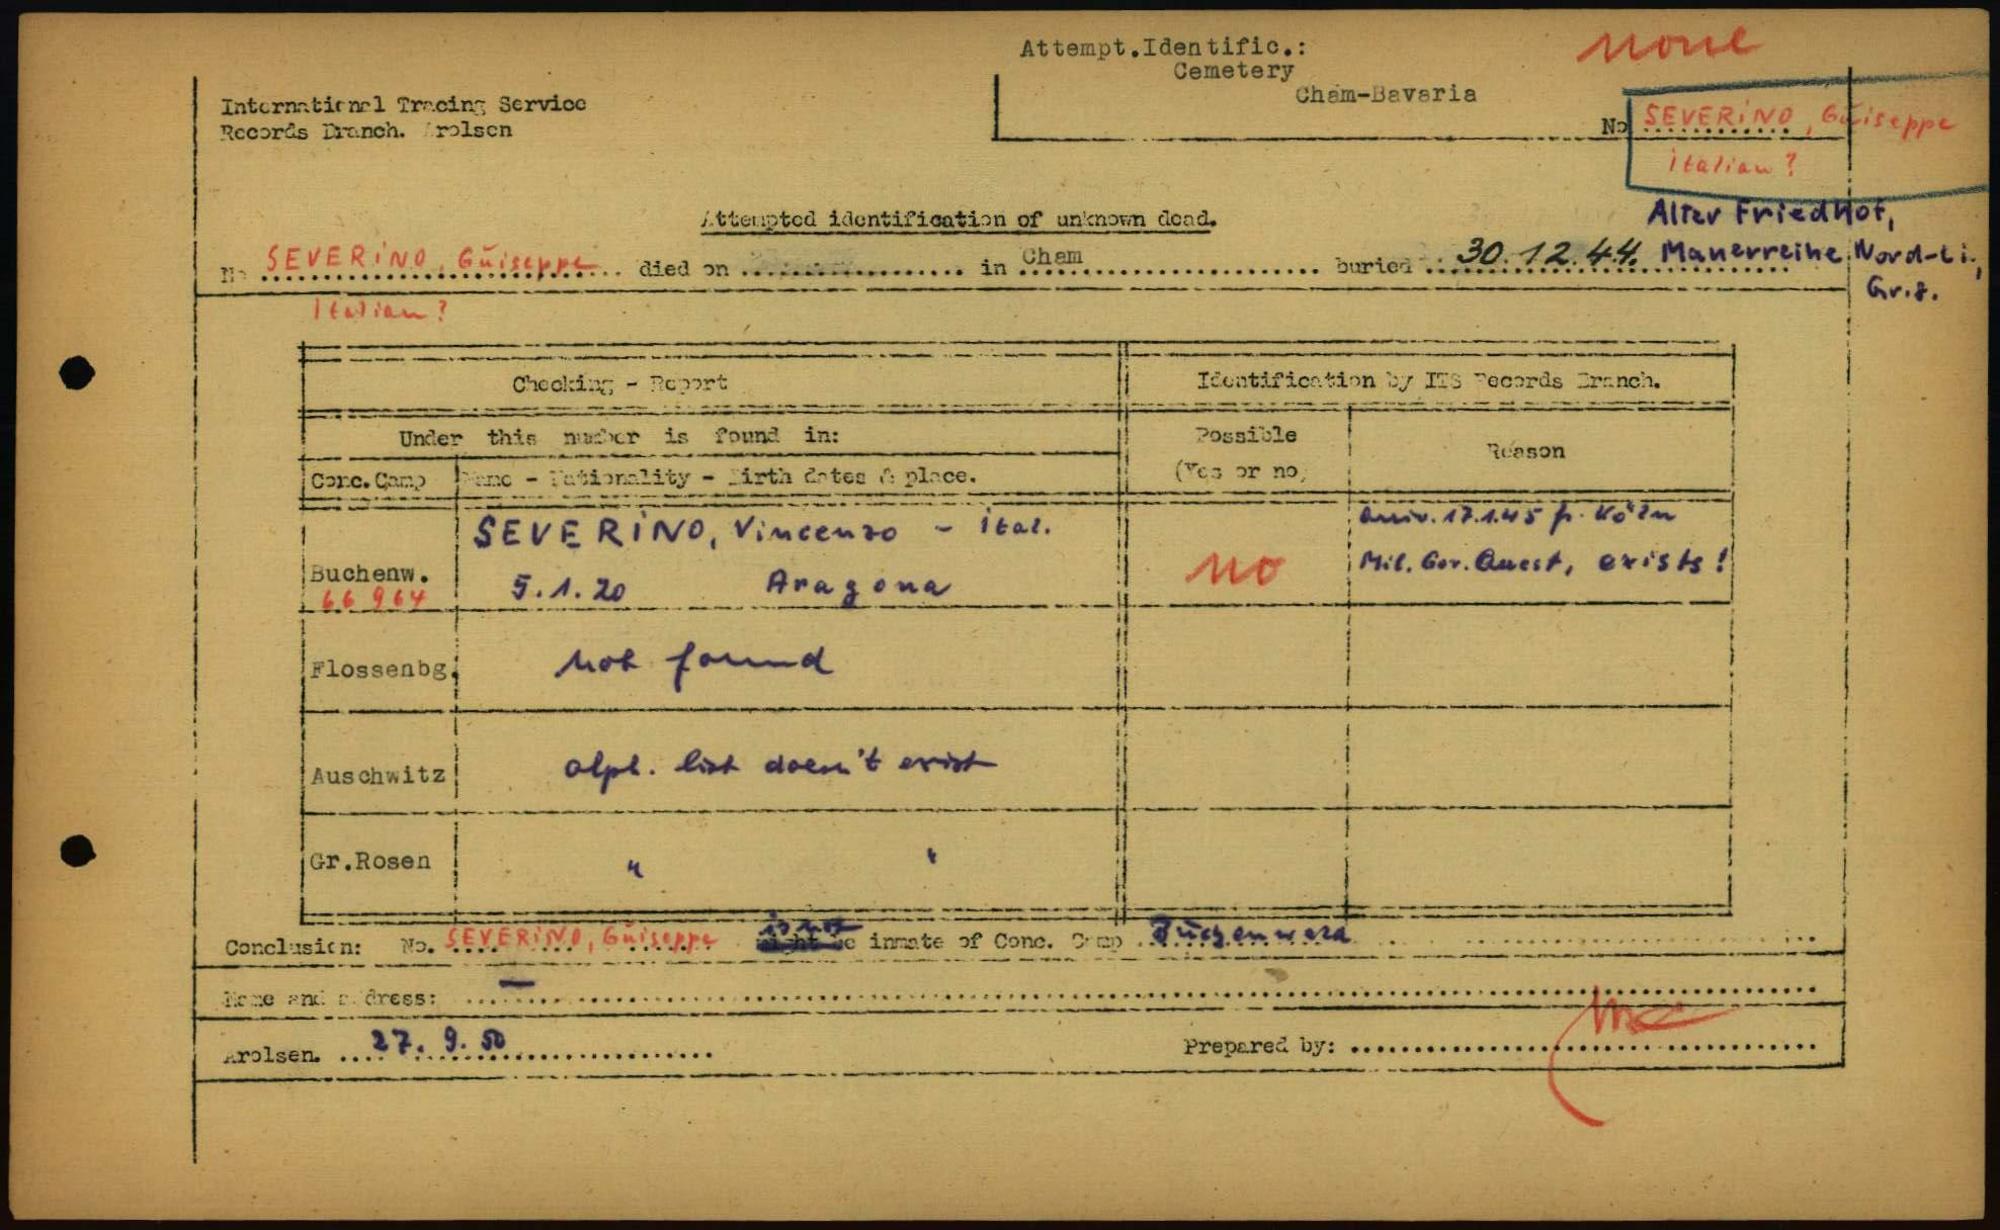 Attempt.Identific.:
Cemetery
Cham-Bavaria
none
International Tracing Service
Records Branch. Arolsen
No SEVERINO, Guiseppe
italian?
Attempted identification of unknown dead.
Alter Friedhof,
No SEVERINO, Guiseppe died on in Cham buried 30.12.44. Mauerreihe Nord-Li.,
Gr.8.
italian?
Checking - Report
Identification by ITS Records Branch.
Under this number is found in:
Possible
(Yes or no)
Reason
Conc.Camp
Name - Nationality - Birth dates & place.
SEVERINO, Vincenzo - ital.
arriv. 17.1.45 fr. Köln
Buchenw.
66964
5.1.20 Aragona
no
Mil. Gov. Quest, exists!
Flossenbg.
not found
Auschwitz
alph. list doesn't exist
Gr.Rosen
" "
Conclusion: No. SEVERINO, Guiseppe is not inmate of Conc. Camp Buchenwald
Name and address: —
Arolsen. 27. 9. 50
Prepared by: